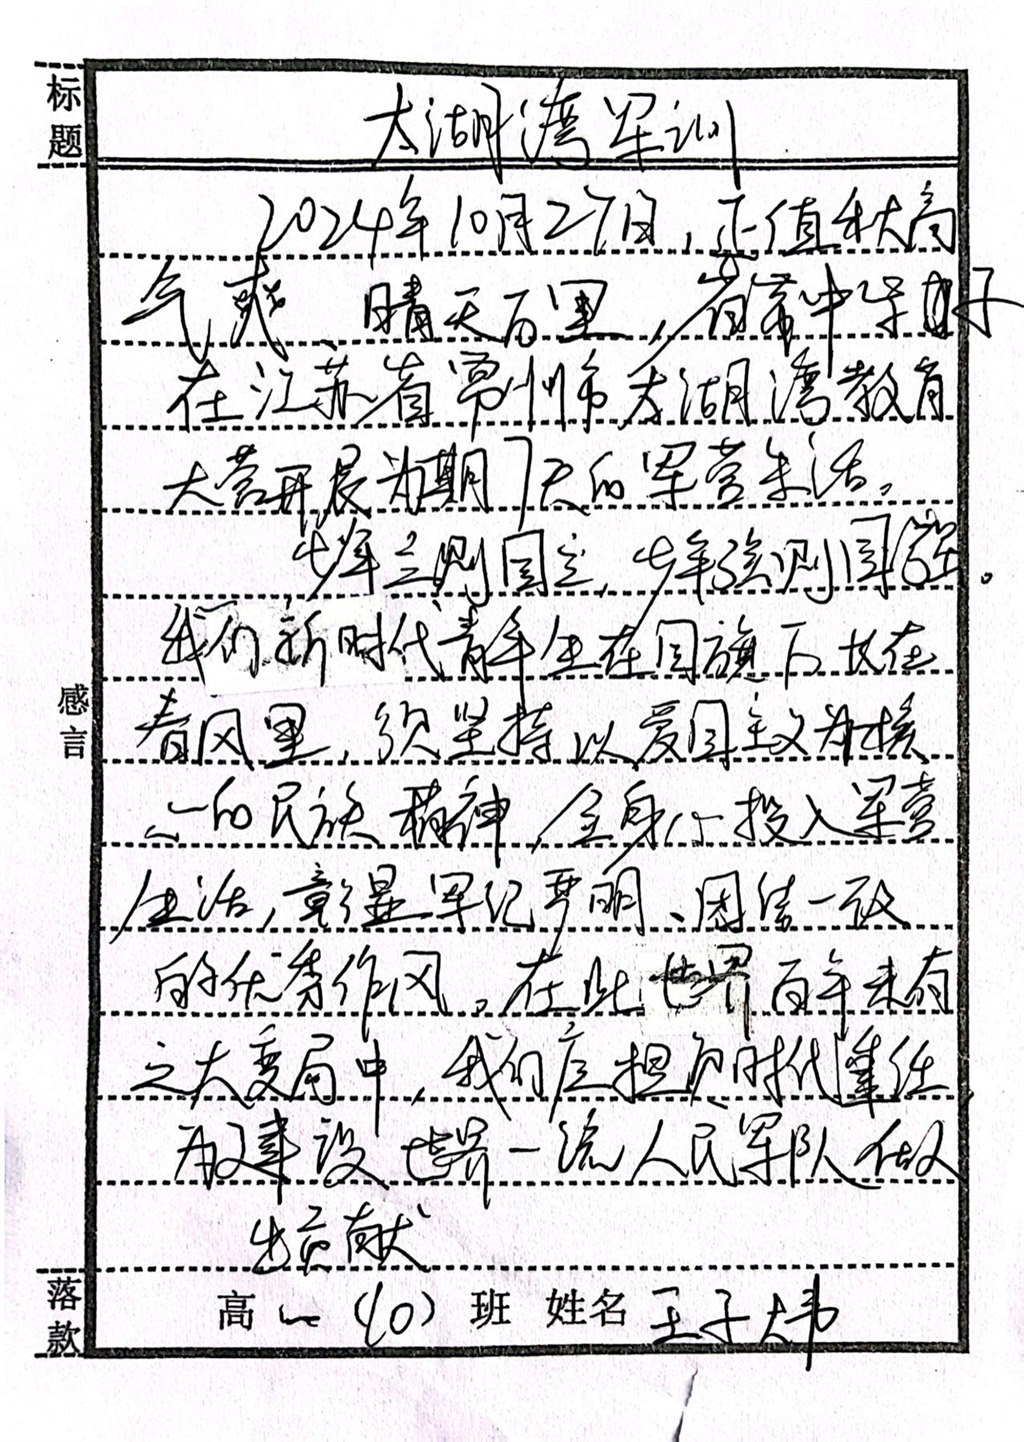 标题
太湖湾军训
2024年10月27日，正值秋高
气爽、晴天百里，省常中学子
在江苏省常州市太湖湾教育
大营开展为期7天的军营生活。
少年立则国立，少年强则国强。
我们新时代青年生在国旗下长在
春风里，须坚持以爱国主义为核
心的民族精神，全身心投入军营
生活，彰显军纪严明、团结一致
的优秀作风。在此世界百年未有
之大变局中，我们应担负时代重任，
为建设世界一流人民军队做
出贡献
感言
落款
高一（10）班 姓名 王子